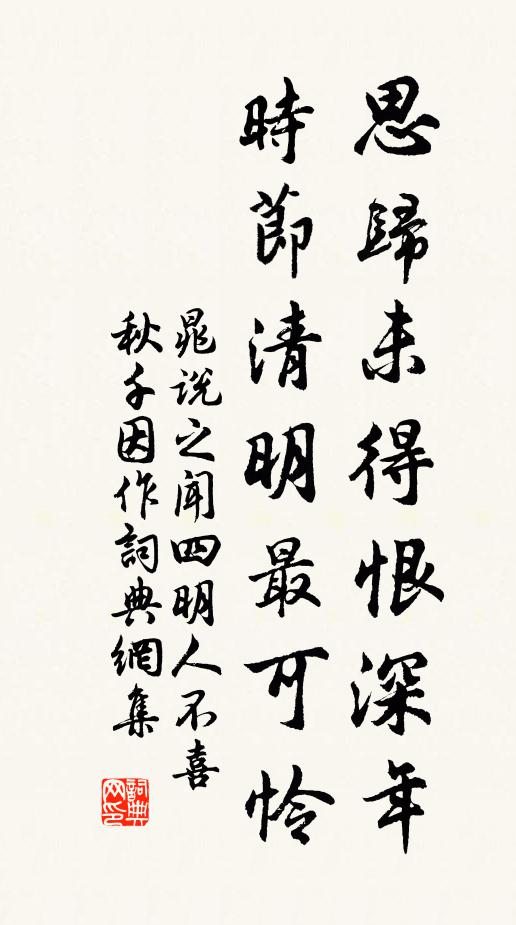 思歸未得恨深年
時節清明最可怜
晁說之聞四明人不喜
秋千因作詞典網集
詞典网印